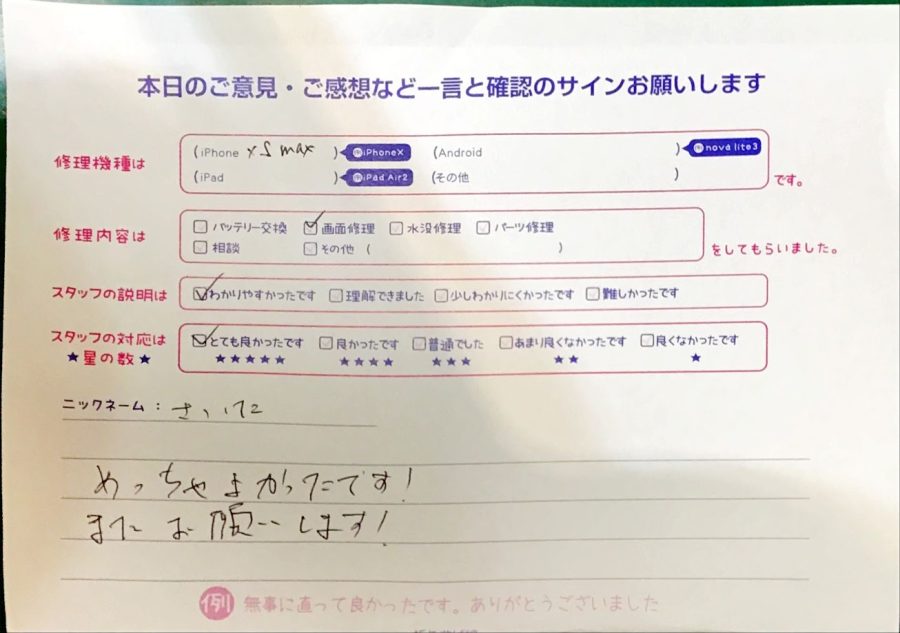 本日のご意見・ご感想など一言と確認のサインお願いします
修理機種は (iPhone XS max ) 例iPhoneX (Android ) 例nova lite3
(iPad ) 例iPad Air2 (その他 ) です。
修理内容は バッテリー交換 画面修理 水没修理 パーツ修理
相談 その他 ( ) をしてもらいました。
スタッフの説明は わかりやすかったです 理解できました 少しわかりにくかったです 難しかったです
スタッフの対応は とても良かったです 良かったです 普通でした あまり良くなかったです 良くなかったです
★星の数★ ★★★★★ ★★★★ ★★★ ★★ ★
ニックネーム：
めっちゃよかったです！
またお願いします！
例 無事に直って良かったです。ありがとうございました